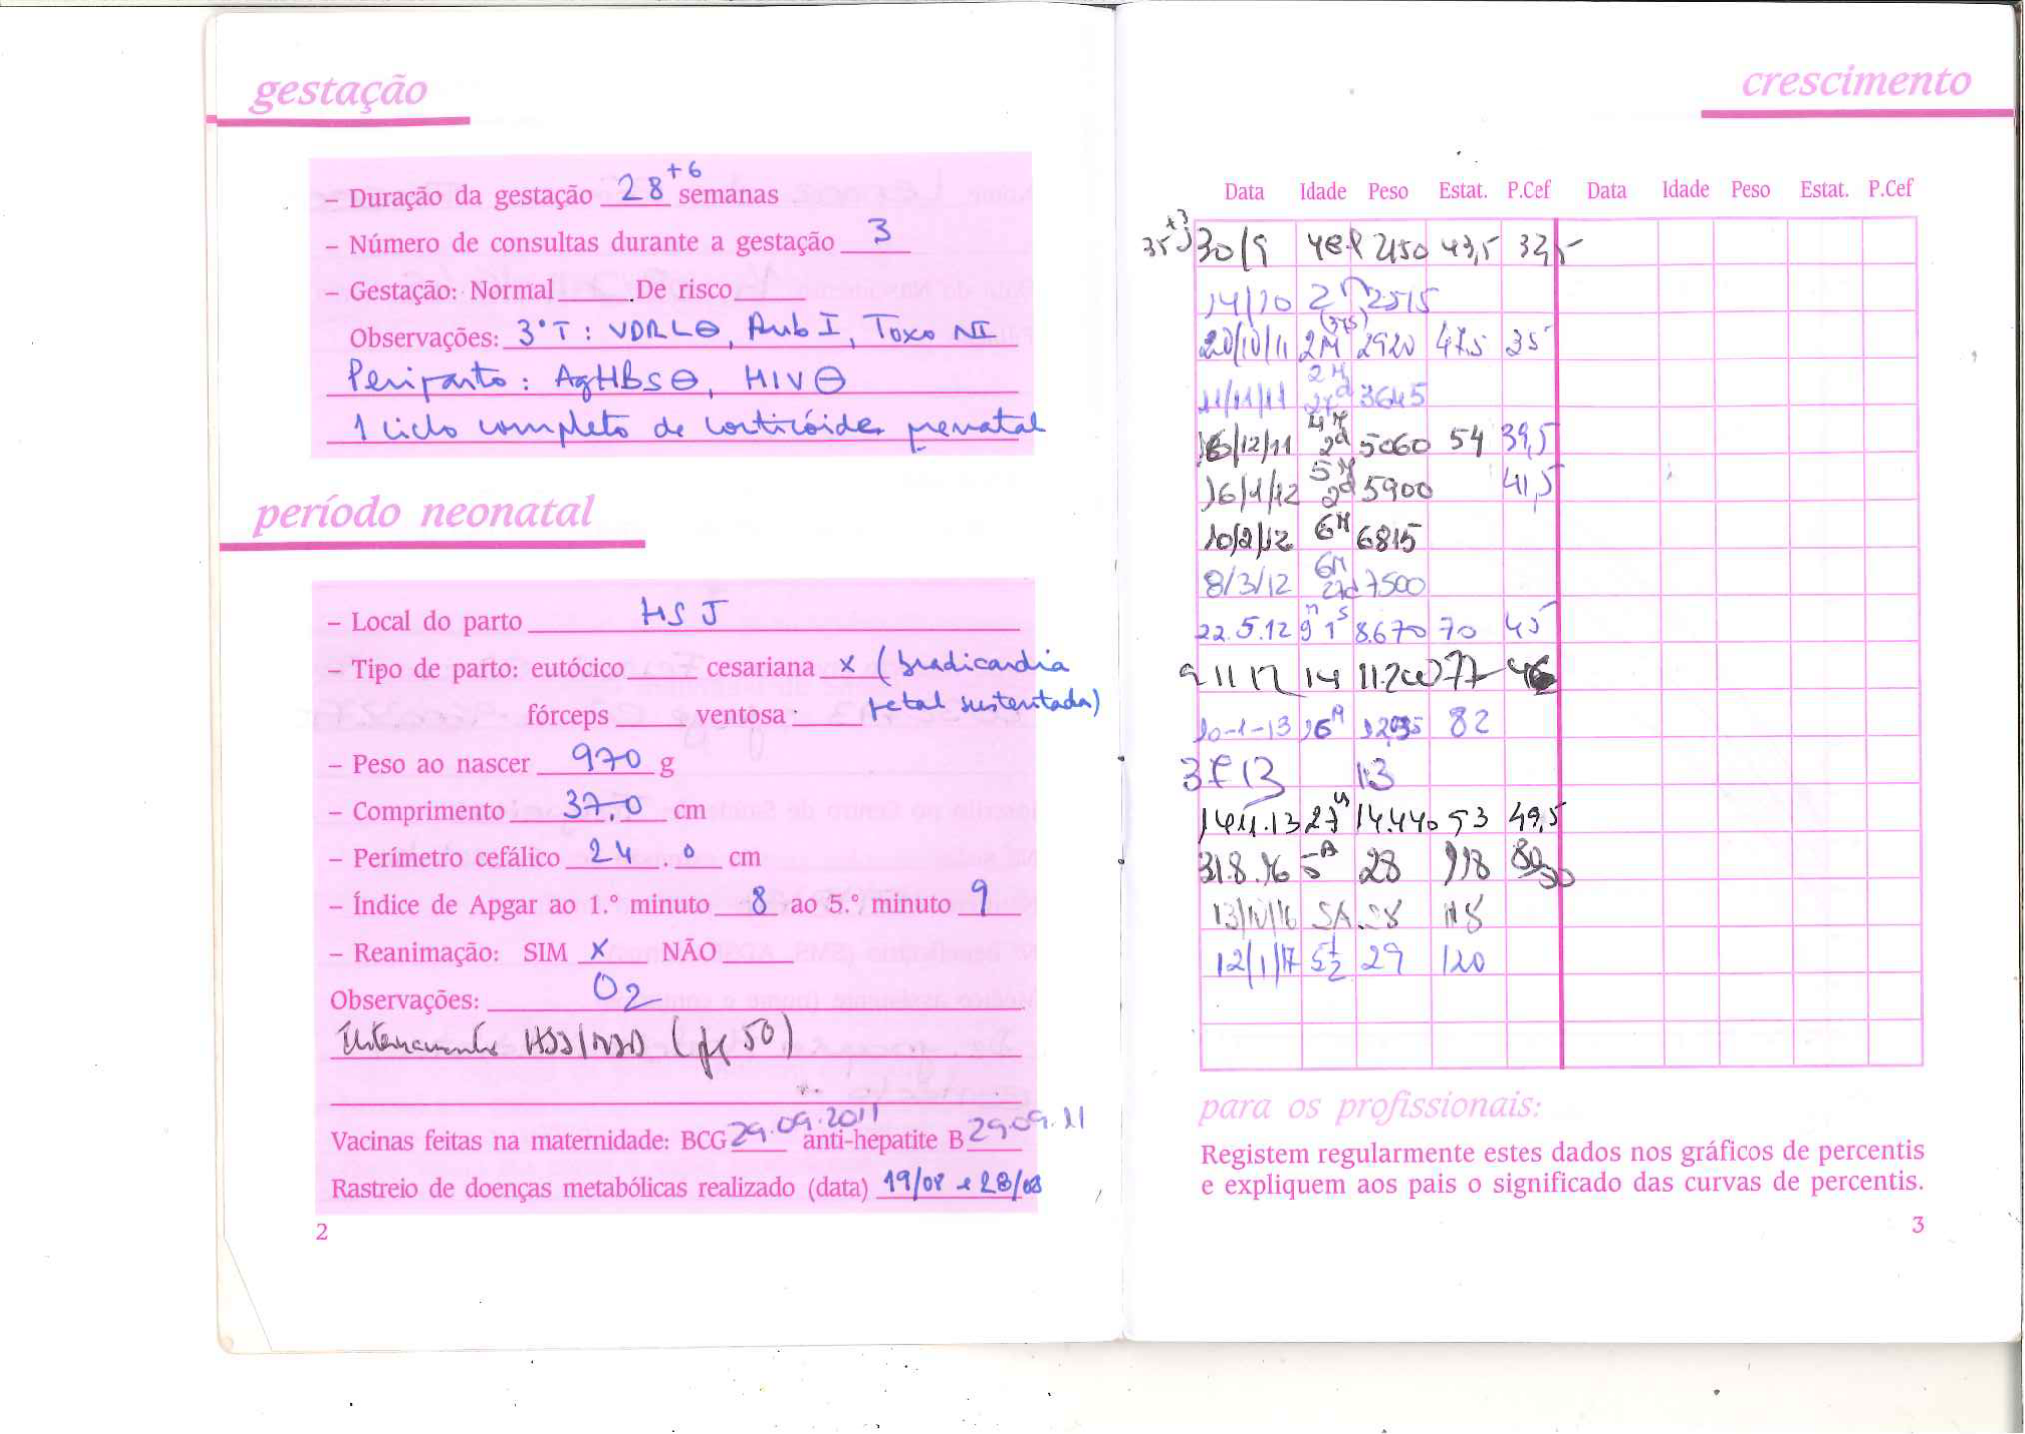 gestação
– Duração da gestação 28+6 semanas
– Número de consultas durante a gestação 3
– Gestação: Normal De risco
Observações: 3ºT: VDRL⊖, Rub I, Toxo NI
Periparto: AgHBs⊖, HIV⊖
1 ciclo completo de corticóides prenatal
período neonatal
– Local do parto HSJ
– Tipo de parto: eutócico cesariana x (bradicardia
fórceps ventosa fetal sustentada)
– Peso ao nascer 970 g
– Comprimento 37,0 cm
– Perímetro cefálico 24.0 cm
– Índice de Apgar ao 1.º minuto 8 ao 5.º minuto 9
– Reanimação: SIM X NÃO
Observações: O2
Internamento (pg 50)
Vacinas feitas na maternidade: BCG 29.09.2011 anti-hepatite B 29.09.11
Rastreio de doenças metabólicas realizado (data) 19/08 e 28/08
2
crescimento
Data Idade Peso Estat. P.Cef Data Idade Peso Estat. P.Cef
35+3 30/9 2150 43,5 32,5
14/10 2M 2515
20/10/11 2M (37S) 2920 47,5 35
11/11/11 2M 27d 3645
16/12/11 4M 2d 5060 54 39,5
16/1/12 5M 2d 5900 41,5
10/2/12 6M 6815
8/3/12 6M 27d 7500
22.5.12 9M 1S 8.670 70 45
9 11 12 14 11.200 77 46
10-1-13 16M 82
13
14.11.13 27M 14.440 93 49,5
31.8.16 5A 28 118
13/10/16 5A 28 118
12/1/17 5½ 29 120
para os profissionais:
Registem regularmente estes dados nos gráficos de percentis
e expliquem aos pais o significado das curvas de percentis.
3